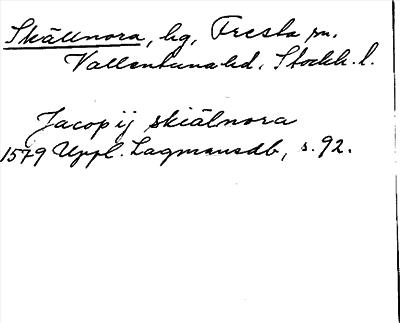 Skällnora, hg, Fresta sn.
Vallentuna hd, Stockh. l.
Jacop ij skiälnora
1579 Uppl. Lagmansdb, s. 92.